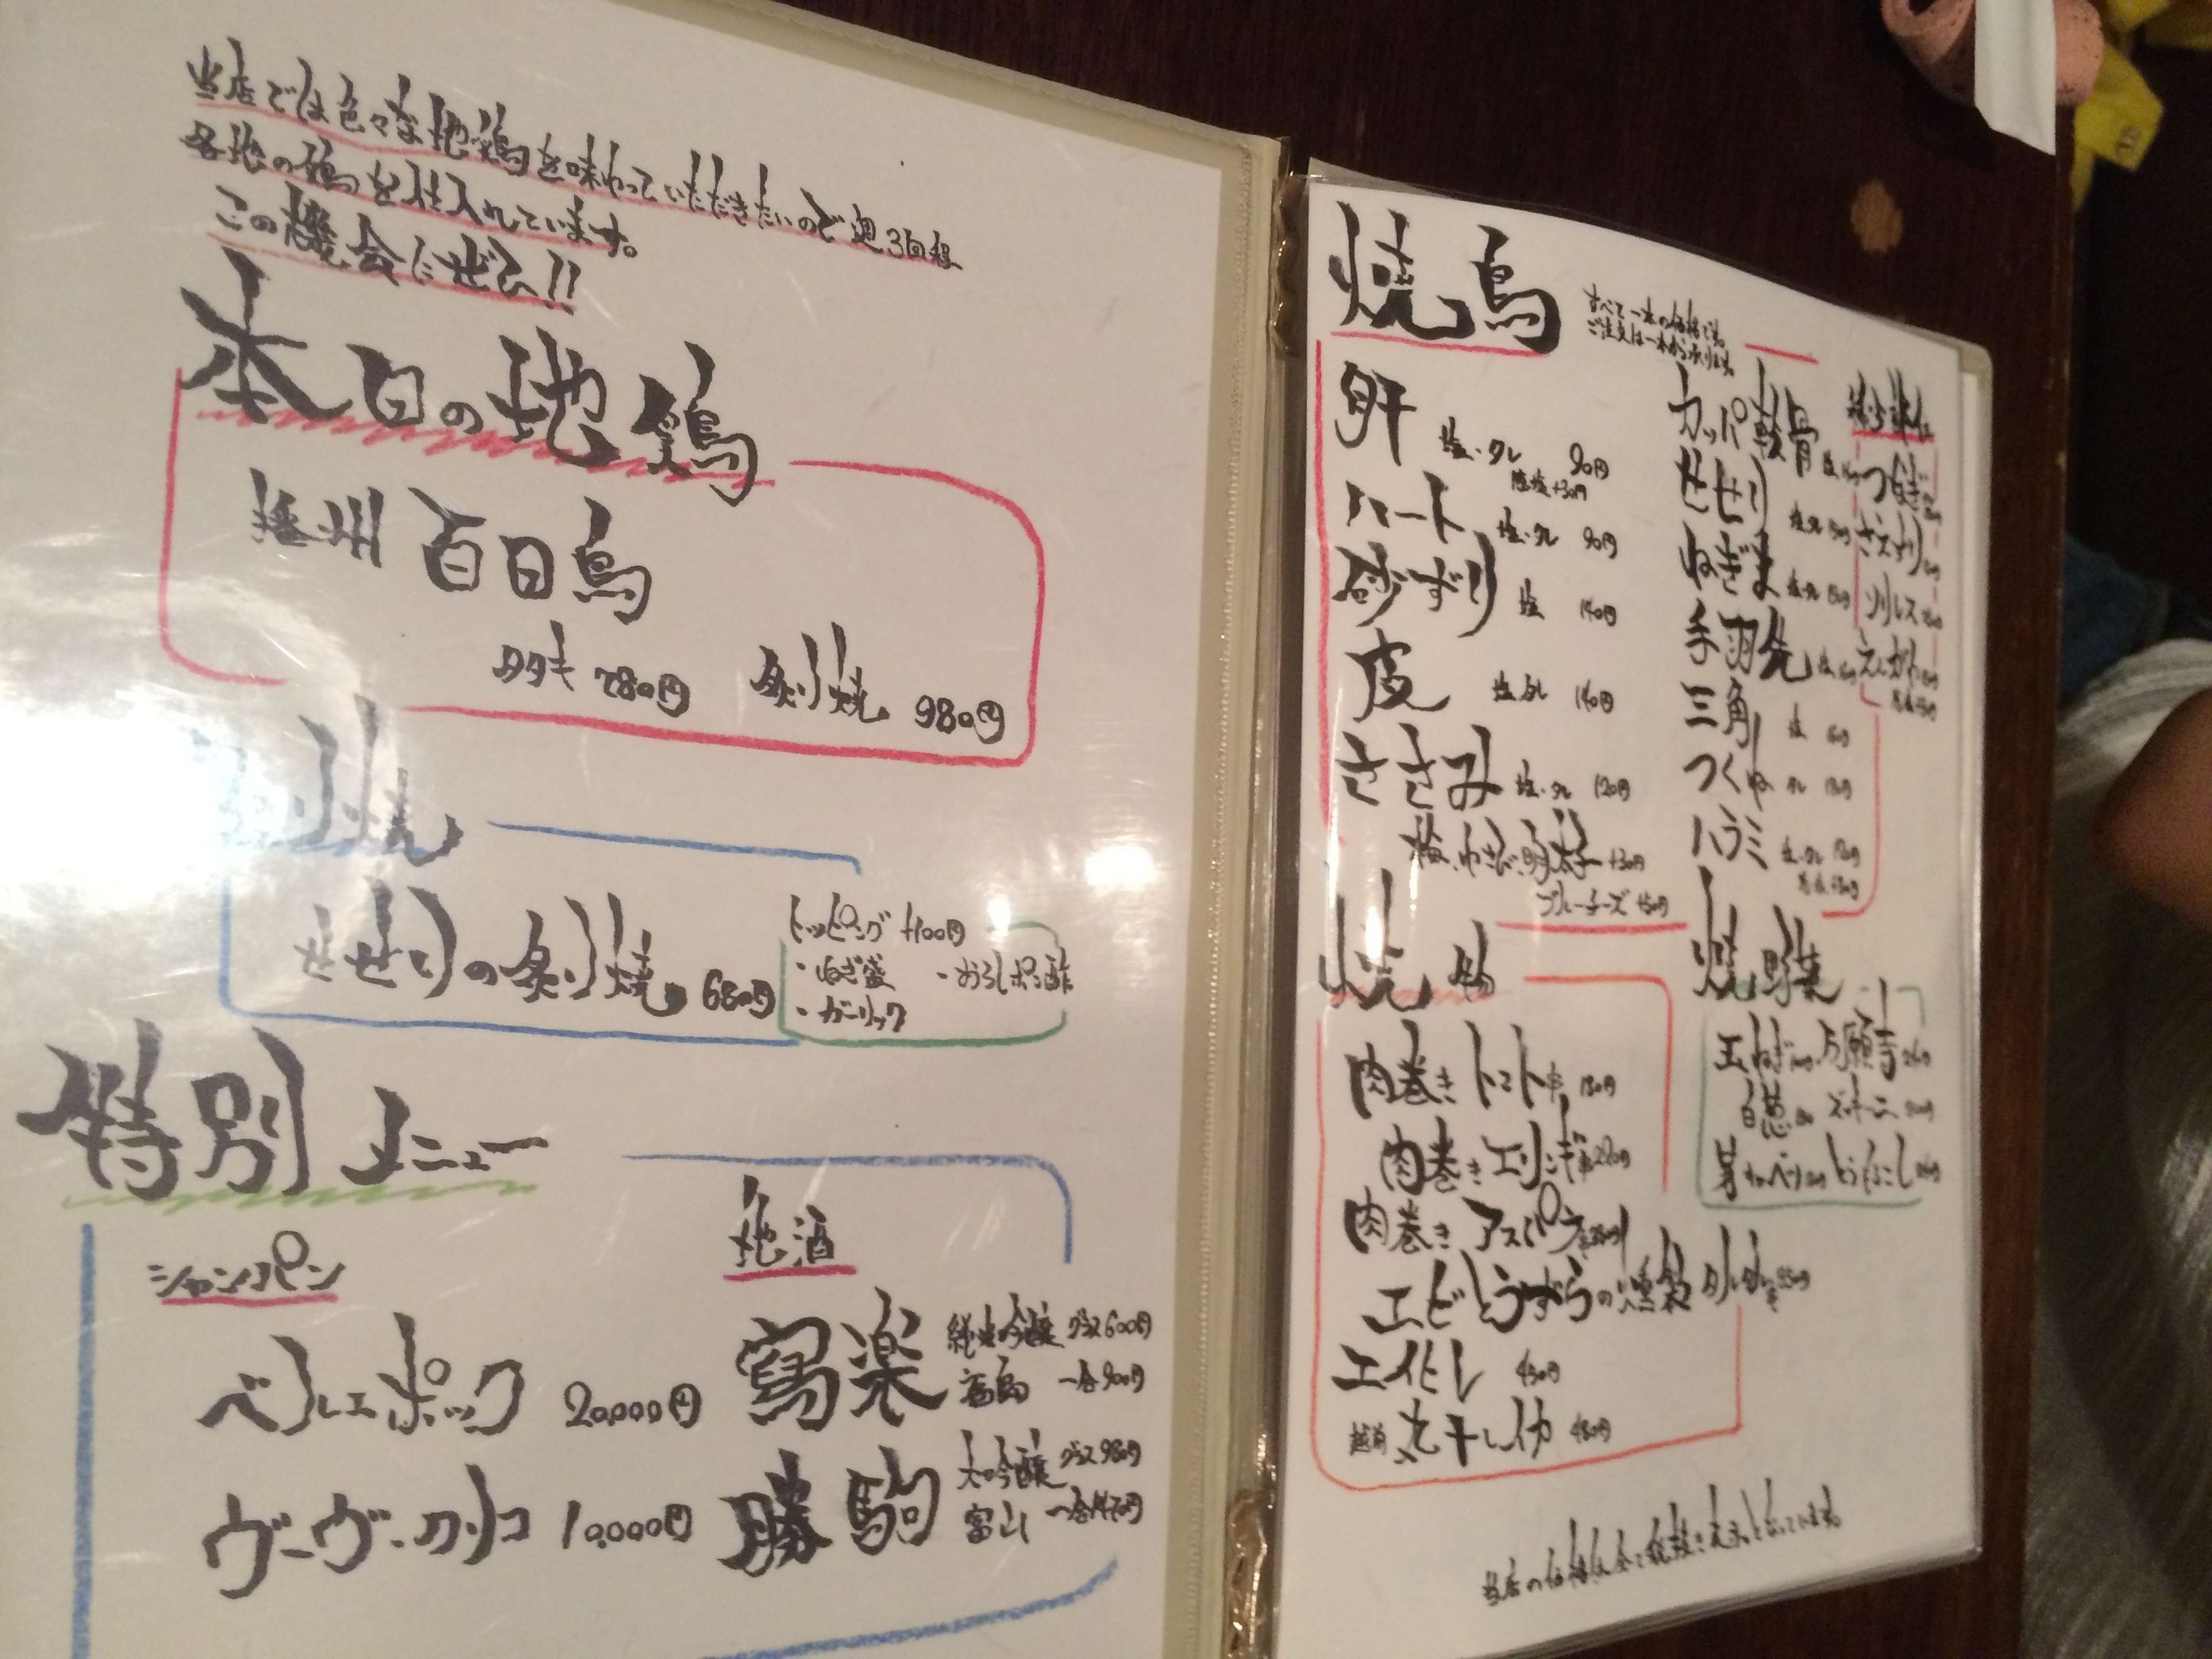 当店では色々な地鶏を味わっていただきたいので週3回程
各地の鶏を仕入れています。
この機会にぜひ!!
本日の地鶏
播州 百日鳥
タタキ 780円 炙り焼 980円
せせりの炙り焼 680円
トッピング +100円
・ねぎ盛 ・おろしポン酢
・ガーリック
特別メニュー
シャンパン
ベルエポック 20,000円
ヴーヴ・クリコ 10,000円
地酒
寫楽 純米吟醸 グラス600円
福島 一合900円
勝駒 大吟醸 グラス980円
富山 一合1470円
焼鳥
すべて一本の価格です。
ご注文は一本から承ります。
肝 塩・タレ 90円
ハート 塩・タレ 90円
砂ずり 塩 140円
皮 塩・タレ 140円
ささみ 塩・タレ 120円
梅、わさび、明太子 +30円
ブルーチーズ +50円
カッパ軟骨 塩
せせり 塩・タレ
ねぎま 塩・タレ
手羽先 塩
三角 塩
つくね タレ
ハラミ 塩・タレ
希少部位
つなぎ
さえずり
ソリレス
えんがわ
焼物
肉巻きトマト串 180円
肉巻きエリンギ串
肉巻きアスパラ
エビとうずらの燻製タルタル
エイヒレ 450円
越前 丸干しイカ 480円
焼野菜
玉ねぎ 万願寺
白葱 ズッキーニ
芽キャベツ とうもろこし
当店の価格は全て税抜き表示となっています。